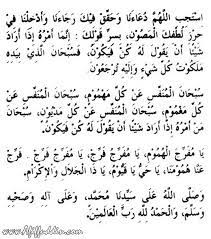 اسْتَجِبِ اللَّهُمَّ دُعَاءَنَا وَحَقِّقْ فِيكَ رَجَاءَنَا وَأَدْخِلْنَا فِي
حِرْزِ لُطْفِكَ الْمَصُونِ، بِسِرِّ قَوْلِكَ : إِنَّمَا أَمْرُهُ إِذَا أَرَادَ
شَيْئاً أَنْ يَقُولَ لَهُ كُنْ فَيَكُونُ، فَسُبْحَانَ الَّذِي بِيَدِهِ
مَلَكُوتُ كُلِّ شَيْءٍ وَإِلَيْهِ تُرْجَعُونَ.
سُبْحَانَ الْمُنَفِّسِ عَنْ كُلِّ مَهْمُومٍ، سُبْحَانَ الْمُنَفِّسِ عَنْ
كُلِّ مَغْمُومٍ، سُبْحَانَ الْمُنَفِّسِ عَنْ كُلِّ مَدْيُونٍ، سُبْحَانَ
مَنْ أَمْرُهُ إِذَا أَرَادَ شَيْئاً أَنْ يَقُولَ لَهُ كُنْ فَيَكُونُ.
يَا مُفَرِّجَ الْهُمُومِ، يَا مُفَرِّجُ فَرِّجْ، يَا مُفَرِّجُ فَرِّجْ . فَرِّجْ
عَنَّا هُمُومَنَا، يَا حَيُّ يَا قَيُّومُ، يَا ذَا الْجَلَالِ وَالْإِكْرَامِ.
وَصَلَّى اللهُ عَلَى سَيِّدِنَا مُحَمَّدٍ، وَعَلَى آلِهِ وَصَحْبِهِ
وَسَلَّمَ، وَالْحَمْدُ لِلَّهِ رَبِّ الْعَالَمِينَ.